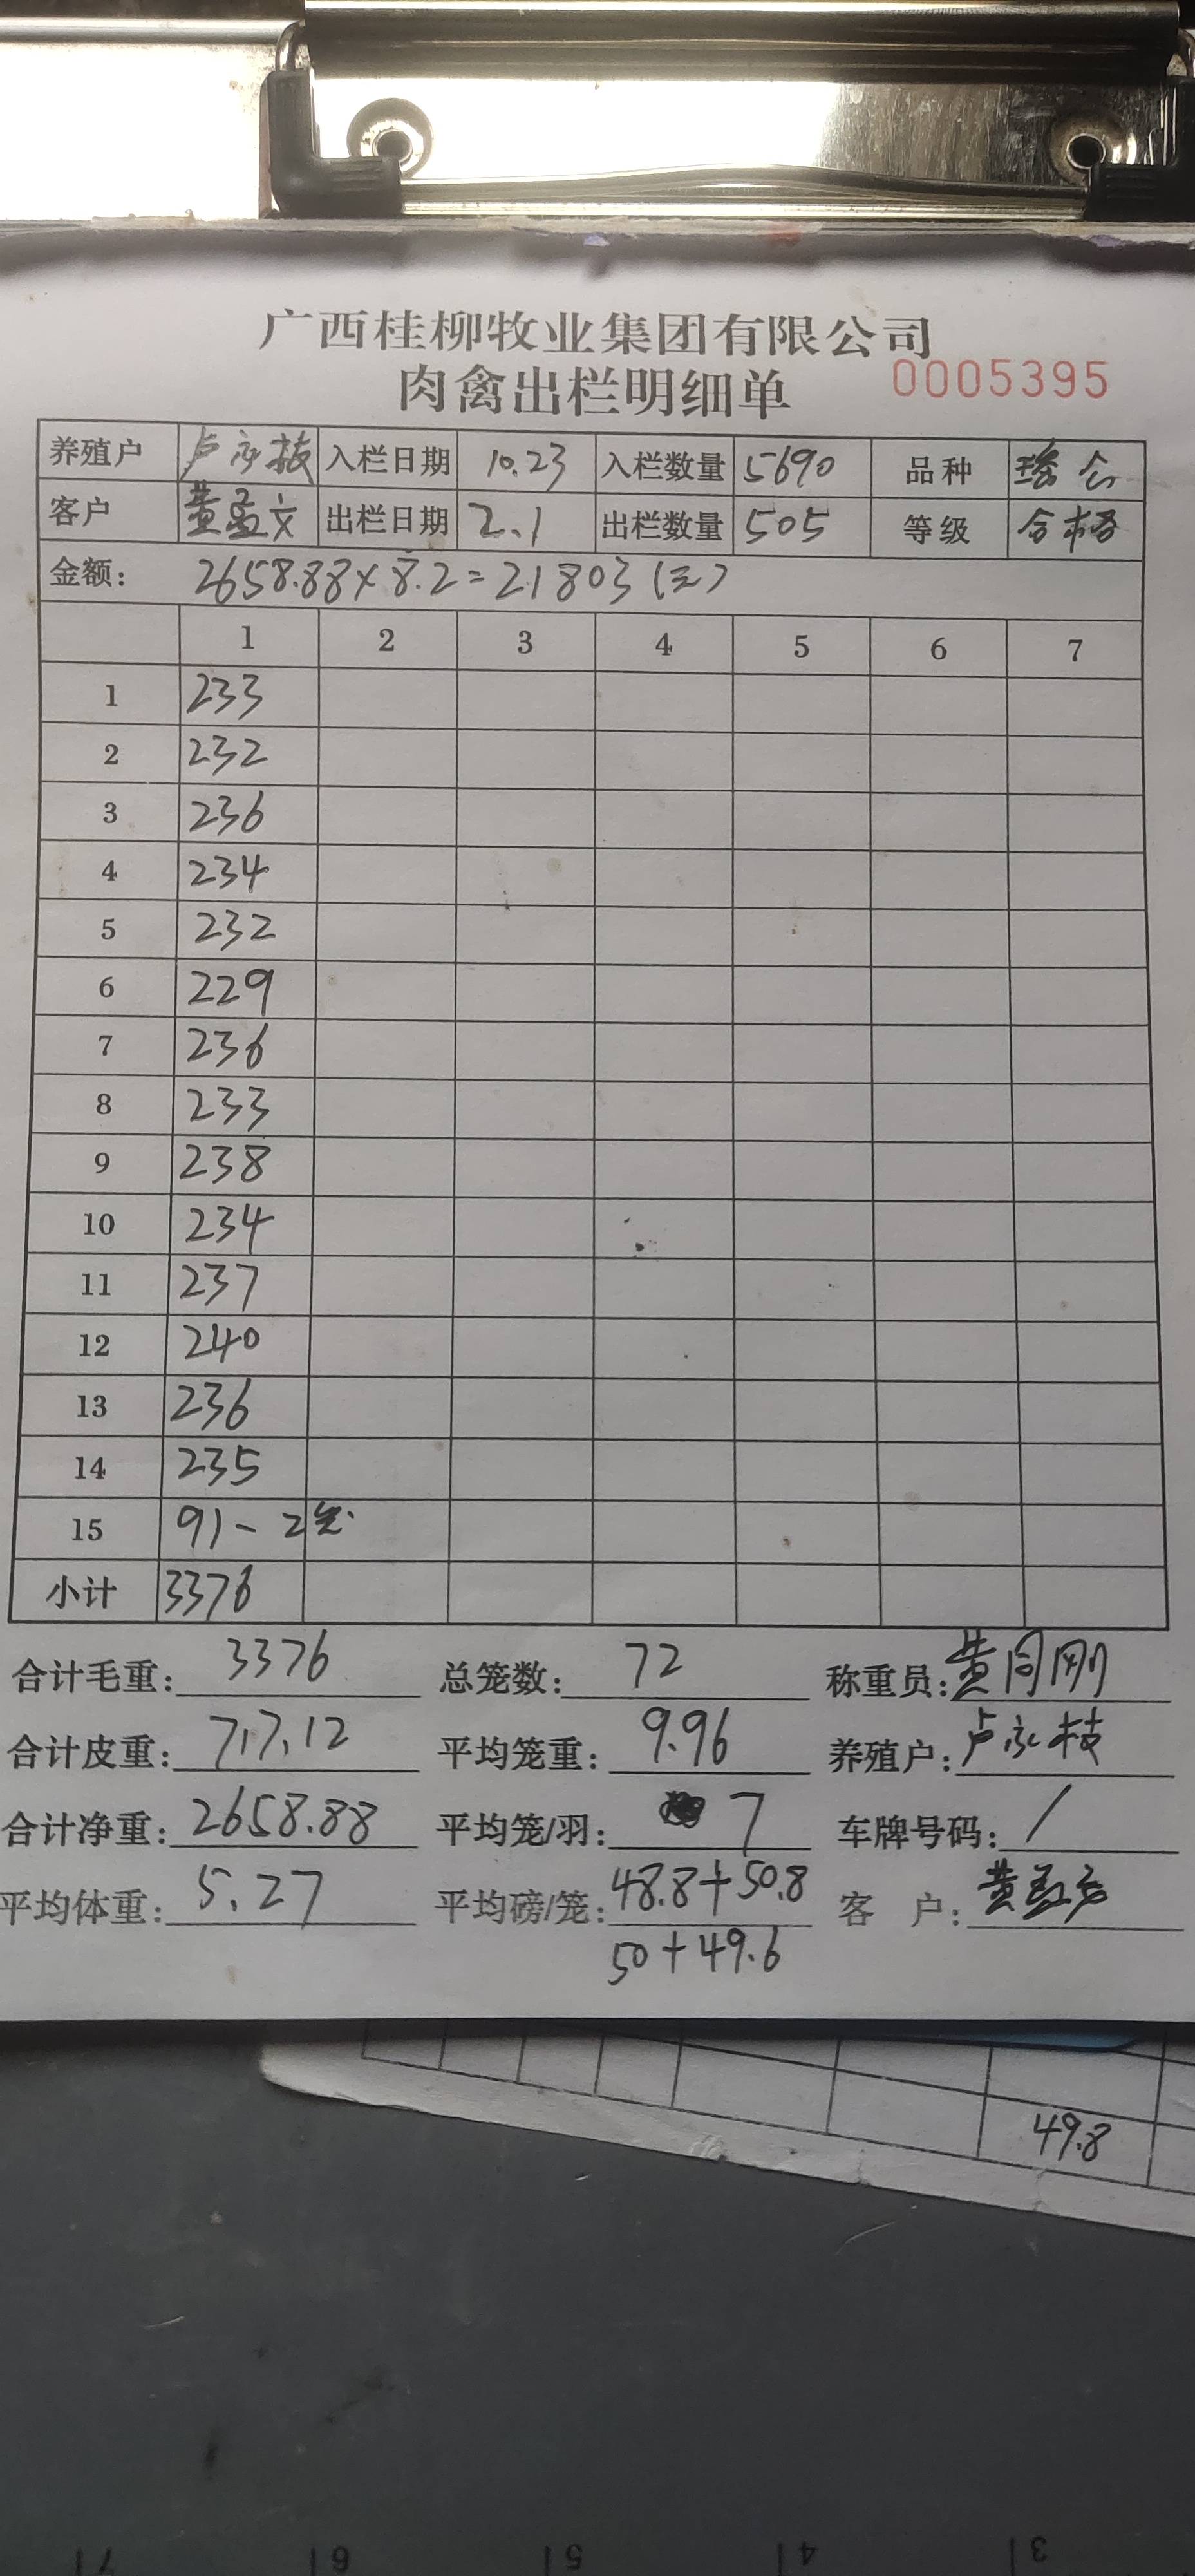 广西桂柳牧业集团有限公司
肉禽出栏明细单 0005395
养殖户 卢永枝 入栏日期 10.23 入栏数量 5690 品种
客户 黄孟文 出栏日期 2.1 出栏数量 505 等级 合格
金额: 2658.88×8.2=21803(元)
1 2 3 4 5 6 7
1 233
2 232
3 236
4 234
5 232
6 229
7 236
8 233
9 238
10 234
11 237
12 240
13 236
14 235
15 91-2笼
小计 3376
合计毛重: 3376 总笼数: 72 称重员: 黄同刚
合计皮重: 717.12 平均笼重: 9.96 养殖户: 卢永枝
合计净重: 2658.88 平均笼/羽: 7 车牌号码: /
平均体重: 5.27 平均磅/笼: 48.8+50.8 客 户: 黄孟文
50+49.6
49.8